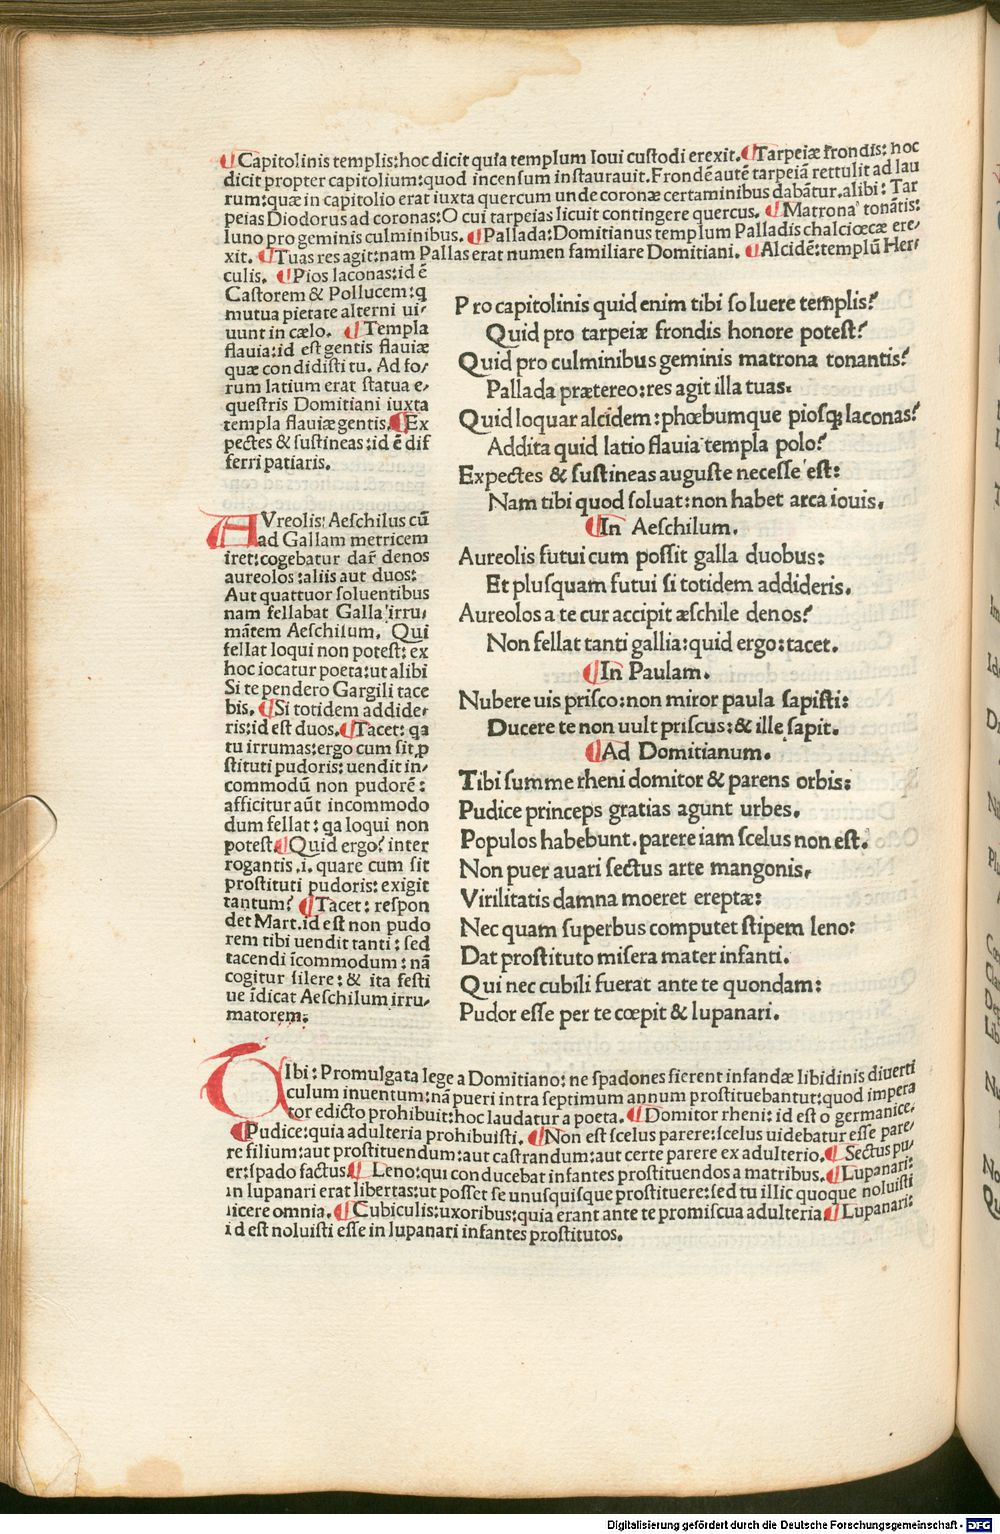 ¶Capitolinis templis:hoc dicit quia templum Ioui cuſtodi erexit.¶Tarpeiæ frondis: hoc
dicit propter capitolium:quod incenſum inſtaurauit.Frondē autē tarpeiā rettulit ad lau
rum:quæ in capitolio erat iuxta quercum unde coronæ certaminibus dabātur.alibi: Tar
peias Diodorus ad coronas:O cui tarpeias licuit contingere quercus. ¶Matrona tonātis:
Iuno pro geminis culminibus. ¶Pallada:Domitianus templum Palladis chalciœcæ ere⸗
xit. ¶Tuas res agit:nam Pallas erat numen familiare Domitiani. ¶Alcidē:templū Her⸗
culis. ¶Pios laconas:id ē
Caſtorem & Pollucem:q
mutua pietate alterni ui⸗
uunt in cælo. ¶Templa
flauia:id eſt gentis flauiæ
quæ condidiſti tu. Ad fo⸗
rum latium erat ſtatua e⸗
queſtris Domitiani iuxta
templa flauiæ gentis.¶Ex
pectes & ſuſtineas:id ē dif
ferri patiaris.
AVreolis: Aeſchilus cū
ad Gallam metricem
iret:cogebatur dar̄ denos
aureolos:aliis aut duos:
Aut quattuor ſoluentibus
nam fellabat Galla irru⸗
mātem Aeſchilum. Qui
fellat loqui non poteſt: ex
hoc iocatur poeta:ut alibi
Si te pendero Gargili tace
bis. ¶Si totidem addide⸗
ris:id eſt duos.¶Tacet: qa
tu irrumas:ergo cum ſit ꝓ
ſtituti pudoris: uendit in⸗
commodū non pudorē:
afficitur aūt incommodo
dum fellat: qa loqui non
poteſt.¶Quid ergo? inter
rogantis .i. quare cum ſit
proſtituti pudoris: exigit
tantum? ¶Tacet: reſpon
det Mart.id eſt non pudo
rem tibi uendit tanti: ſed
tacendi īcommodum: nā
cogitur ſilere: & ita feſti
ue īdicat Aeſchilum irru⸗
matorem.
Pro capitolinis quid enim tibi ſoluere templis?
Quid pro tarpeiæ frondis honore poteſt?
Quid pro culminibus geminis matrona tonantis?
Pallada prætereo:res agit illa tuas.
Quid loquar alcidem:phœbumque pioſq; laconas?
Addita quid latio flauia templa polo?
Expectes & ſuſtineas auguſte neceſſe eſt:
Nam tibi quod ſoluat:non habet arca iouis.
¶In Aeſchilum.
Aureolis futui cum poſſit galla duobus:
Et pluſquam futui ſi totidem addideris.
Aureolos a te cur accipit æſchile denos?
Non fellat tanti gallia:quid ergo:tacet.
¶In Paulam.
Nubere uis priſco:non miror paula ſapiſti:
Ducere te non uult priſcus:& ille ſapit.
¶Ad Domitianum.
Tibi ſumme rheni domitor & parens orbis:
Pudice princeps gratias agunt urbes.
Populos habebunt.parere iam ſcelus non eſt.
Non puer auari ſectus arte mangonis,
Virilitatis damna moeret ereptæ:
Nec quam ſuperbus computet ſtipem leno:
Dat proſtituto miſera mater infanti.
Qui nec cubili fuerat ante te quondam:
Pudor eſſe per te cœpit & lupanari.
TIbi: Promulgata lege a Domitiano: ne ſpadones fierent infandæ libidinis diuerti
culum inuentum:nā pueri intra ſeptimum annum proſtituebantur:quod impera
tor edicto prohibuit:hoc laudatur a poeta. ¶Domitor rheni: id eſt o germanice.
¶Pudice:quia adulteria prohibuiſti. ¶Non eſt ſcelus parere:ſcelus uidebatur eſſe pare⸗
re filium:aut proſtituendum:aut caſtrandum:aut certe parere ex adulterio.¶Sectus pu⸗
er:ſpado factus.¶ Leno:qui conducebat infantes proſtituendos a matribus.¶Lupanari:
in lupanari erat libertas:ut poſſet ſe unuſquiſque proſtituere:ſed tu illic quoque noluiſti
licere omnia.¶Cubiculis:uxoribus:quia erant ante te promiſcua adulteria¶Lupanari:
id eſt noluiſti eſſe in lupanari infantes proſtitutos.
Digitalisierung gefördert durch die Deutsche Forschungsgemeinschaft - DFG